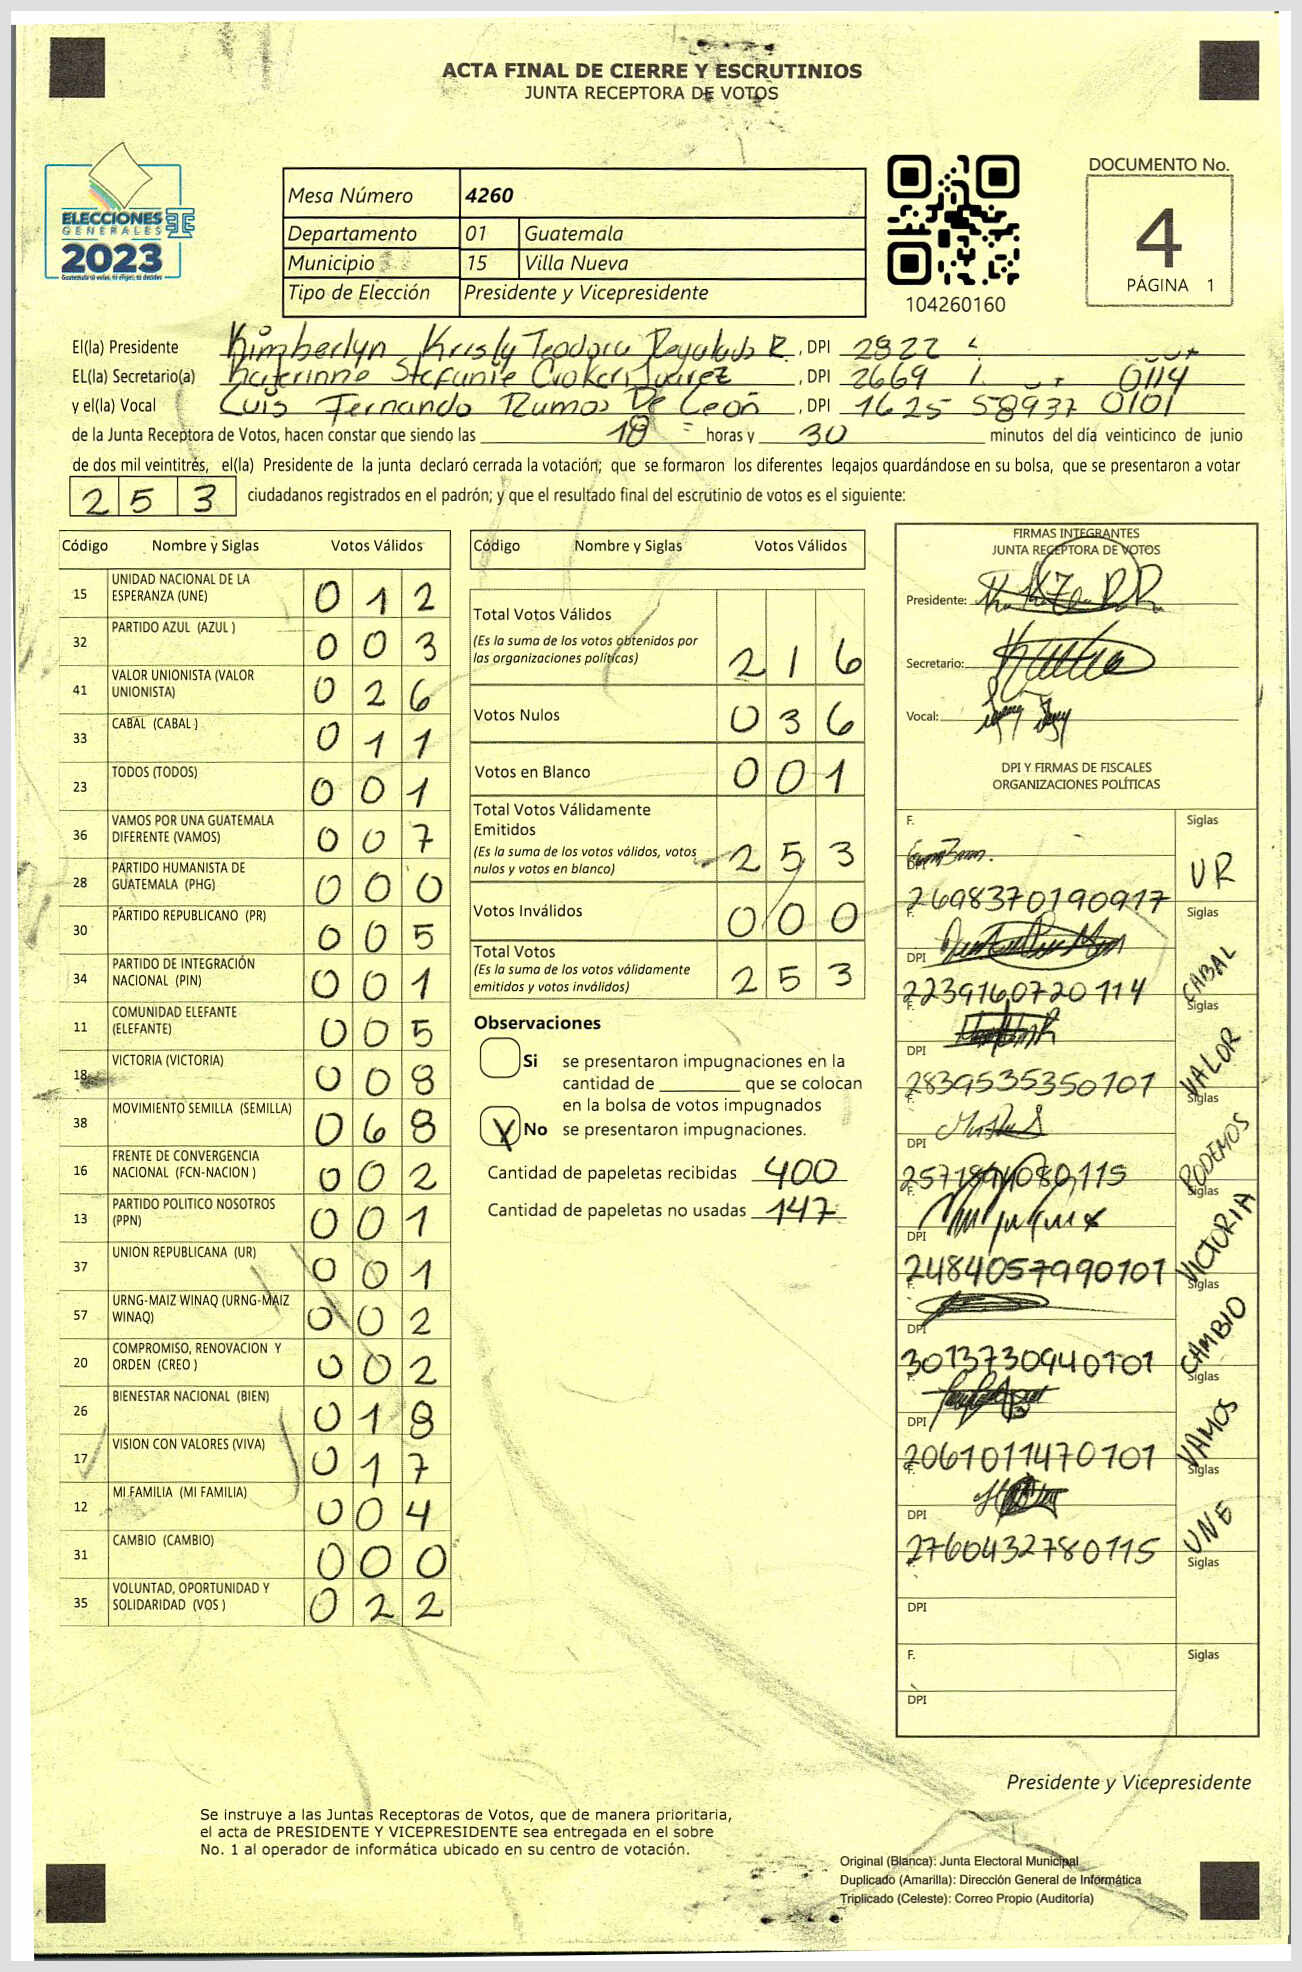 ACTA FINAL DE CIERRE Y ESCRUTINIOS
JUNTA RECEPTORA DE VOTOS
ELECCIONES
GENERALES
2023
Mesa Número 4260
Departamento 01 Guatemala
Municipio 15 Villa Nueva
Tipo de Elección Presidente y Vicepresidente
104260160
DOCUMENTO No.
4
PÁGINA 1
El(la) Presidente Kimberlyn Teodora , DPI 2822
EL(la) Secretario(a) Stefanie , DPI 2669 0114
y el(la) Vocal Luis Fernando Ramos De León , DPI 1625 58937 0101
de la Junta Receptora de Votos, hacen constar que siendo las 18 horas y 30 minutos del día veinticinco de junio
de dos mil veintitrés, el(la) Presidente de la junta declaró cerrada la votación; que se formaron los diferentes legajos guardándose en su bolsa, que se presentaron a votar
253 ciudadanos registrados en el padrón; y que el resultado final del escrutinio de votos es el siguiente:
Código Nombre y Siglas Votos Válidos
15 UNIDAD NACIONAL DE LA ESPERANZA (UNE) 012
32 PARTIDO AZUL (AZUL ) 003
41 VALOR UNIONISTA (VALOR UNIONISTA) 026
33 CABAL (CABAL ) 011
23 TODOS (TODOS) 001
36 VAMOS POR UNA GUATEMALA DIFERENTE (VAMOS) 007
28 PARTIDO HUMANISTA DE GUATEMALA (PHG) 000
30 PARTIDO REPUBLICANO (PR) 005
34 PARTIDO DE INTEGRACIÓN NACIONAL (PIN) 001
11 COMUNIDAD ELEFANTE (ELEFANTE) 005
18 VICTORIA (VICTORIA) 008
38 MOVIMIENTO SEMILLA (SEMILLA) 068
16 FRENTE DE CONVERGENCIA NACIONAL (FCN-NACION ) 002
13 PARTIDO POLITICO NOSOTROS (PPN) 001
37 UNION REPUBLICANA (UR) 001
57 URNG-MAIZ WINAQ (URNG-MAIZ WINAQ) 002
20 COMPROMISO, RENOVACION Y ORDEN (CREO ) 002
26 BIENESTAR NACIONAL (BIEN) 018
17 VISION CON VALORES (VIVA) 017
12 MI FAMILIA (MI FAMILIA) 004
31 CAMBIO (CAMBIO) 000
35 VOLUNTAD, OPORTUNIDAD Y SOLIDARIDAD (VOS ) 022
Código Nombre y Siglas Votos Válidos
Total Votos Válidos
(Es la suma de los votos obtenidos por
las organizaciones políticas) 216
Votos Nulos 036
Votos en Blanco 001
Total Votos Válidamente
Emitidos
(Es la suma de los votos válidos, votos
nulos y votos en blanco) 253
Votos Inválidos 000
Total Votos
(Es la suma de los votos válidamente
emitidos y votos inválidos) 253
Observaciones
Si se presentaron impugnaciones en la
cantidad de ________ que se colocan
en la bolsa de votos impugnados
X No se presentaron impugnaciones.
Cantidad de papeletas recibidas 400
Cantidad de papeletas no usadas 147
FIRMAS INTEGRANTES
JUNTA RECEPTORA DE VOTOS
Presidente:
Secretario:
Vocal:
DPI Y FIRMAS DE FISCALES
ORGANIZACIONES POLÍTICAS
F. Siglas
DPI 2698370190917 UR
F. Siglas
DPI 2239160720114 CABAL
F. Siglas
DPI 2839535350101 VALOR
F. Siglas
DPI PODEMOS
F. Siglas
DPI 2484057990101 VICTORIA
F. Siglas
DPI 3013730940101 CAMBIO
F. Siglas
DPI 2061011470101 VAMOS
F. Siglas
DPI 2760432780115 UNE
F. Siglas
DPI
F. Siglas
DPI
Presidente y Vicepresidente
Se instruye a las Juntas Receptoras de Votos, que de manera prioritaria,
el acta de PRESIDENTE Y VICEPRESIDENTE sea entregada en el sobre
No. 1 al operador de informática ubicado en su centro de votación.
Original (Blanca): Junta Electoral Municipal
Duplicado (Amarilla): Dirección General de Informática
Triplicado (Celeste): Correo Propio (Auditoría)